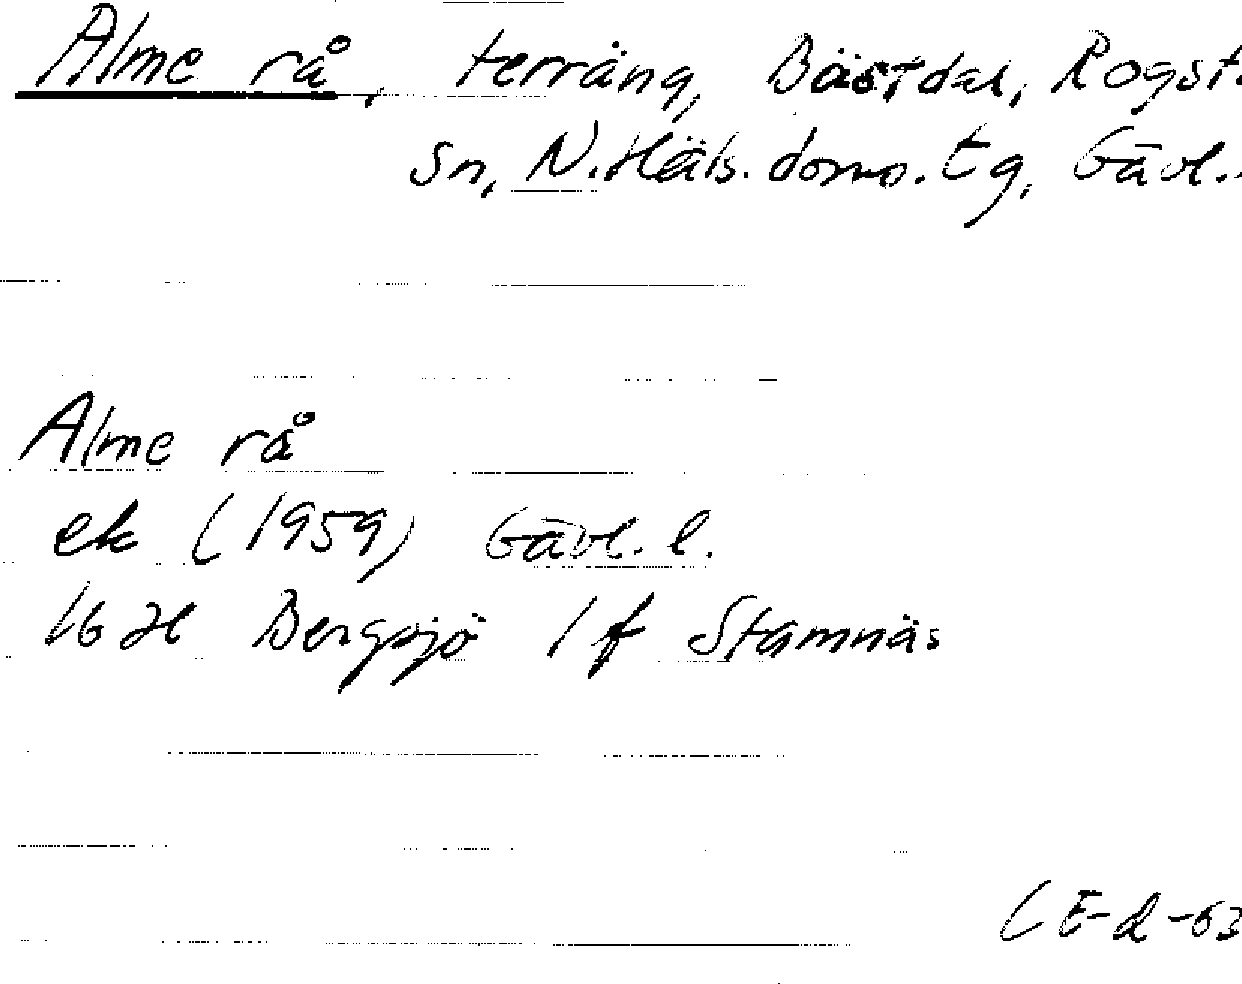 Alme rå, terräng, Bästdal, Rogst.
sn, N. Häls. doms. tg, Gävl.
Alme rå
ek (1959) Gävl. l.
16 H Bergsjö 1 f Stamnäs
(E-d-63